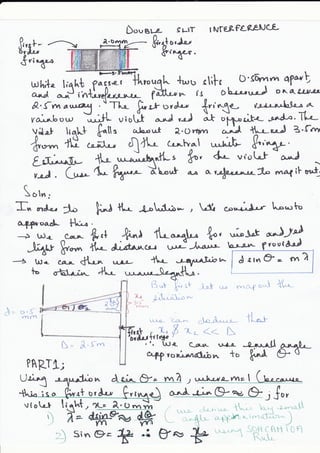 DOUBLE SLIT INTERFERENCE
first-
order
fringes
2.0mm
first order
fringes.
3.5mm
White light passes through two slits 0.50mm apart,
and an interference pattern is observed on a screen
2.5m away. The first order fringe resembles a
rainbow with violet and red at opposite ends. The
violet light falls about 2.0mm and the red 3.5mm
from the center of the central white fringe.
Estimate the wavelengths for the violet and
red. (use the figure about as a reference to map it out.
Soln:
In order to find the solution, let's consider how to
approach this.
→ We can first find the angles for violet and red
light from the distances we have been provided
→ We can then use the equation d sin θ = m λ
to obtain the wavelengths.
But first let us map out the
situation
d = 0.5
mm
D = 2.5m
first
order fringe
we can deduce that
x << D
∴ We can use small angle
approximation to find θ
PART 1;
Using equation d sin θ = m λ, where m = 1 (because
this is a first order fringe) and sin θ ≈ θ; for
violet light, x = 2.0mm
1) λ = d sin θ/m ≈ dθ/m
(we derive this by small
angle approximation)
2) Sin θ = x/D ∴ θ ≈ x/D using SOHCAHTOA
Rule